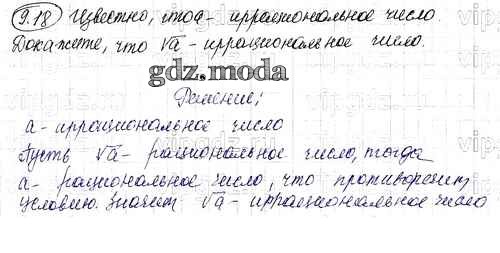 9.18 Известно, что a - иррациональное число.
Докажете, что √a - иррациональное число.
gdz.moda
Решение;
a - иррациональное число
Пусть √a - рациональное число, тогда
a - рациональное число, что противоречит
условию. значит √a - иррациональное число